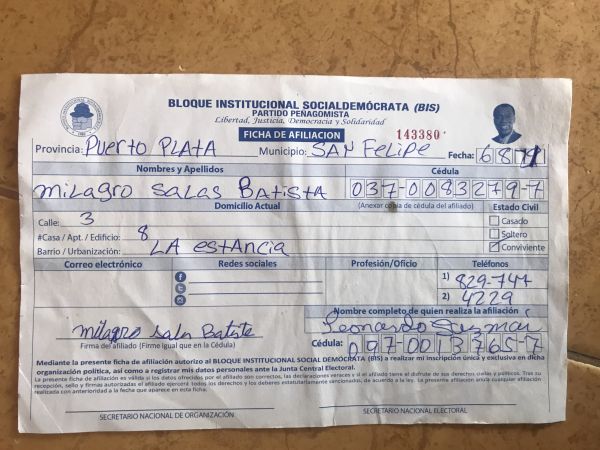 BLOQUE INSTITUCIONAL SOCIALDEMÓCRATA (BIS)
PARTIDO PEÑAGOMISTA
Libertad, Justicia, Democracia y Solidaridad
FICHA DE AFILIACION 143380
Provincia: PUERTO PLATA Municipio: SAN FeLipe Fecha:
Nombres y Apellidos Cédula
milagro Salas Batista 037-0083279-7
Domicilio Actual (Anexar copia de cédula del afiliado) Estado Civil
Calle: 3 Casado
#Casa / Apt. / Edificio: 8 Soltero
Barrio / Urbanización: LA estancia Conviviente
Correo electrónico Redes sociales Profesión/Oficio Teléfonos
1) 829-747
2) 4229
Nombre completo de quien realiza la afiliación
milagro Leonardo Guzmán
Firma del afiliado (Firme igual que en la Cédula) Cédula: 097-0013765-7
Mediante la presente ficha de afiliación autorizo al BLOQUE INSTITUCIONAL SOCIAL DEMÓCRATA (BIS) a realizar mi inscripción única y exclusiva en dicha
organización política, así como a registrar mis datos personales ante la Junta Central Electoral.
La presente ficha de afiliación es válida si los datos ofrecidos por el afiliado son correctos, las declaraciones veraces y si el afiliado tiene el disfrute de sus derechos civiles y políticos. Tras su
recepción, sello y firmas autorizadas el afiliado ejercerá todos los derechos y los deberes estatutariamente sancionados, de acuerdo a la ley. La presente afiliación anula cualquier afiliación
realizada con anterioridad a la fecha que aparece en esta ficha.
SECRETARIO NACIONAL DE ORGANIZACIÓN SECRETARIO NACIONAL ELECTORAL